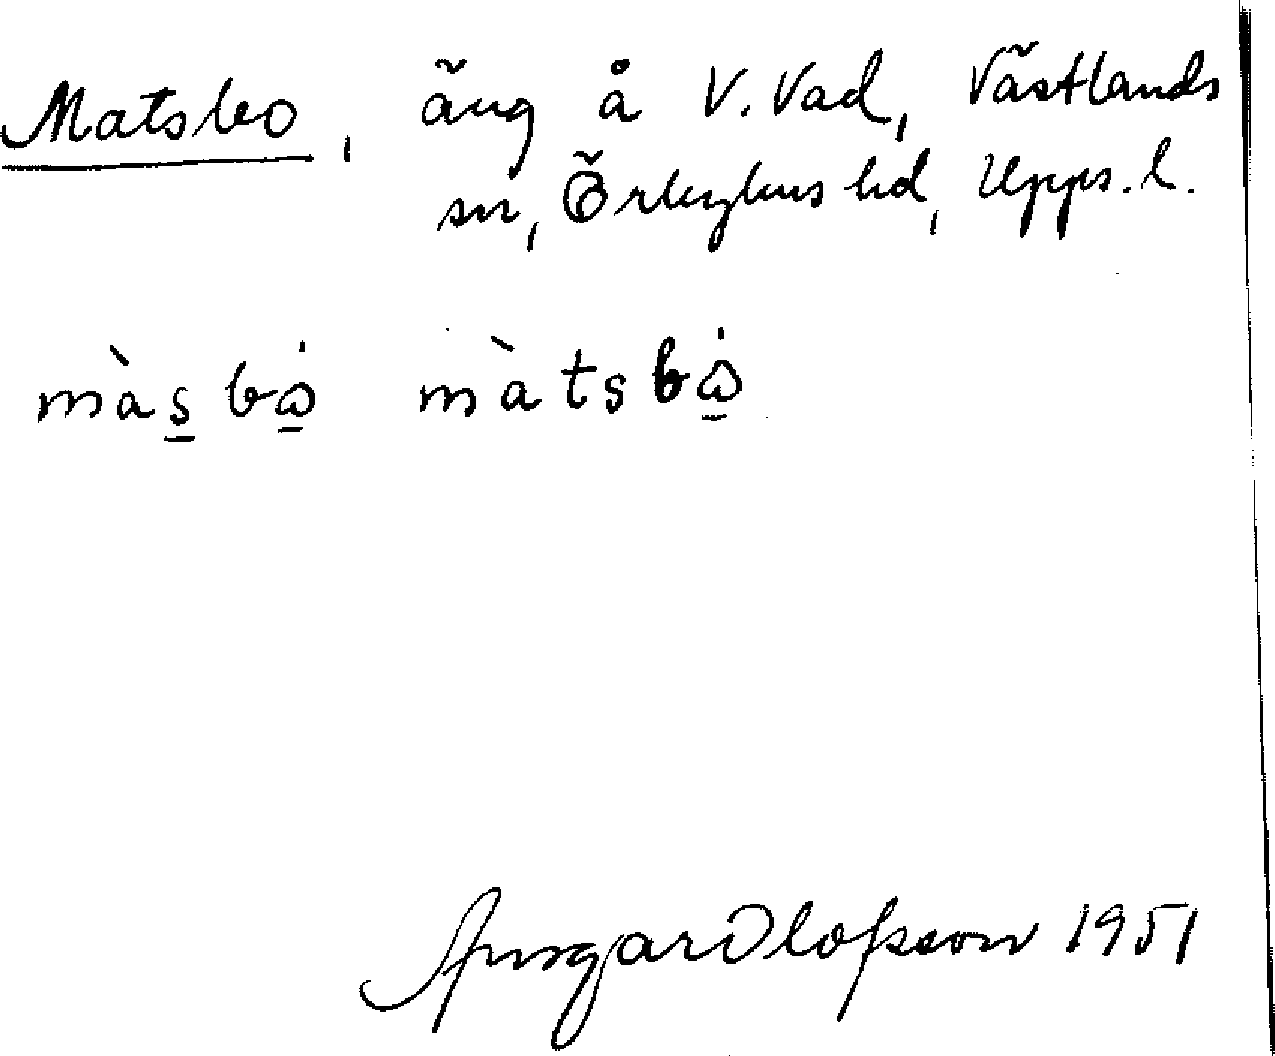 Matsbo, äng å V. Vad, Västlands
sn, Örbyhus hd, Upps. l.
màs̲bω̲̇ màtsbω̲̇
Ansgar Olofsson 1951